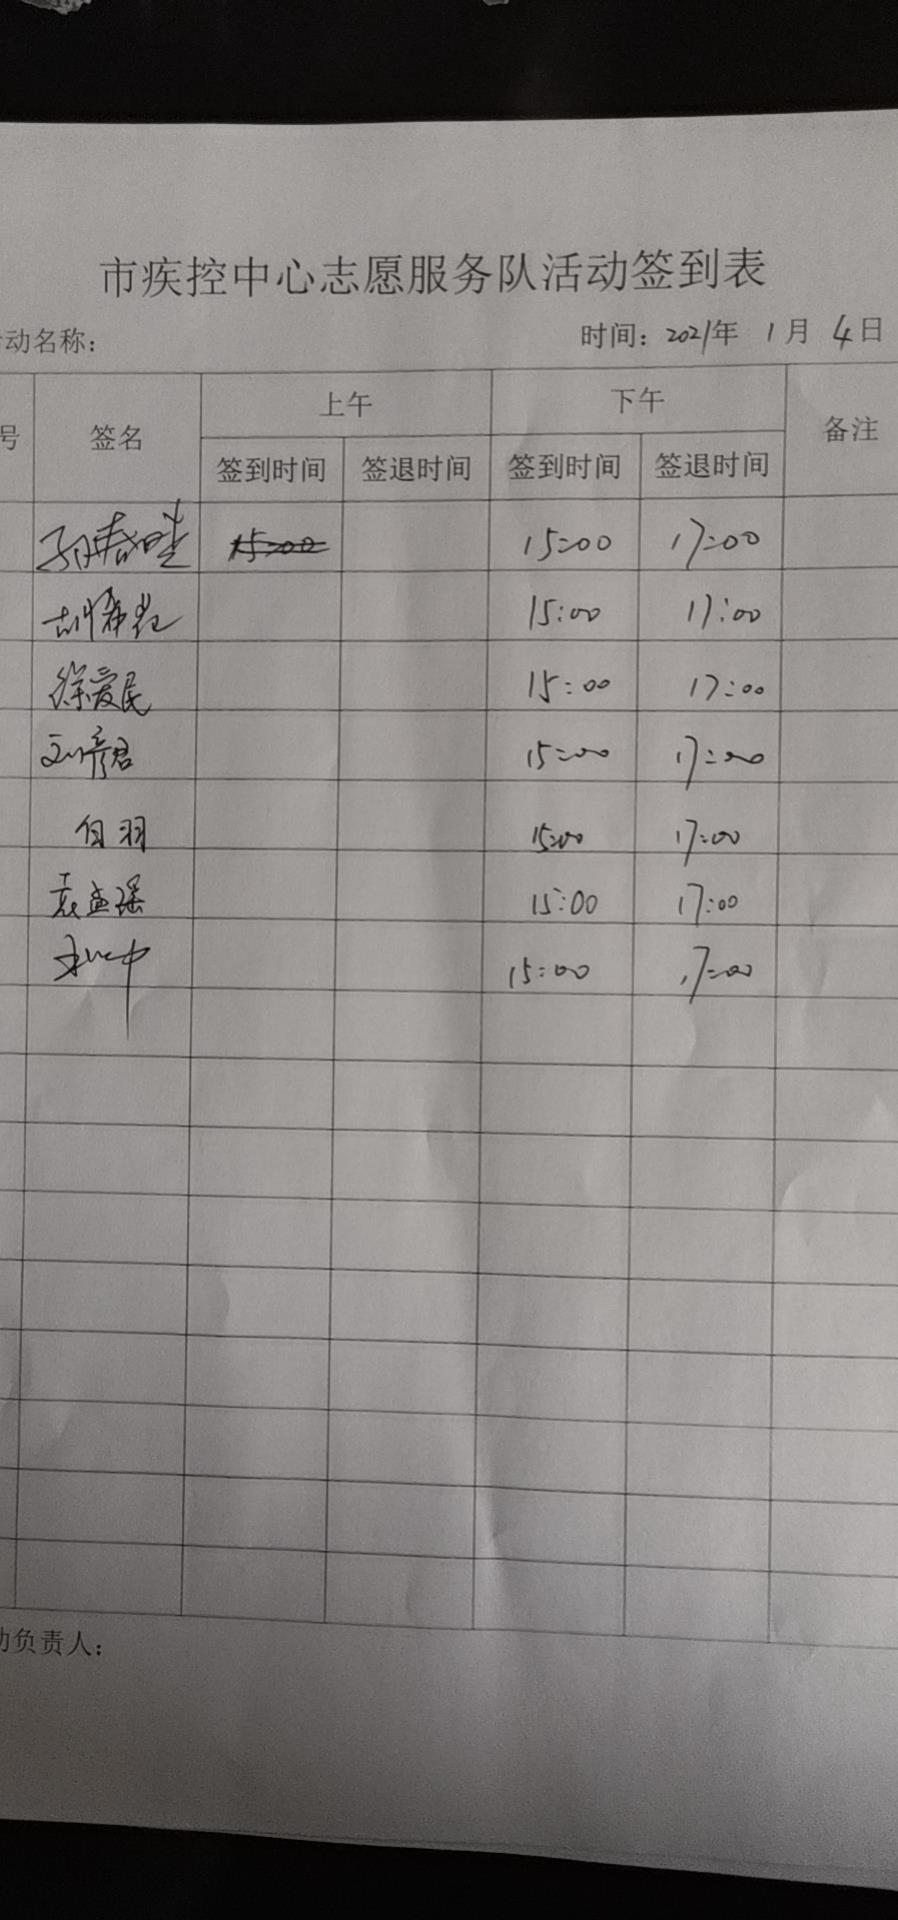 市疾控中心志愿服务队活动签到表
动名称: 时间: 2021年 1月 4日
号 签名 上午 下午 备注
签到时间 签退时间 签到时间 签退时间
15:00 15:00 17:00
15:00 17:00
徐爱民 15:00 17:00
刘彦君 15:00 17:00
白羽 15:00 17:00
袁孟瑶 15:00 17:00
15:00 17:00
负责人: